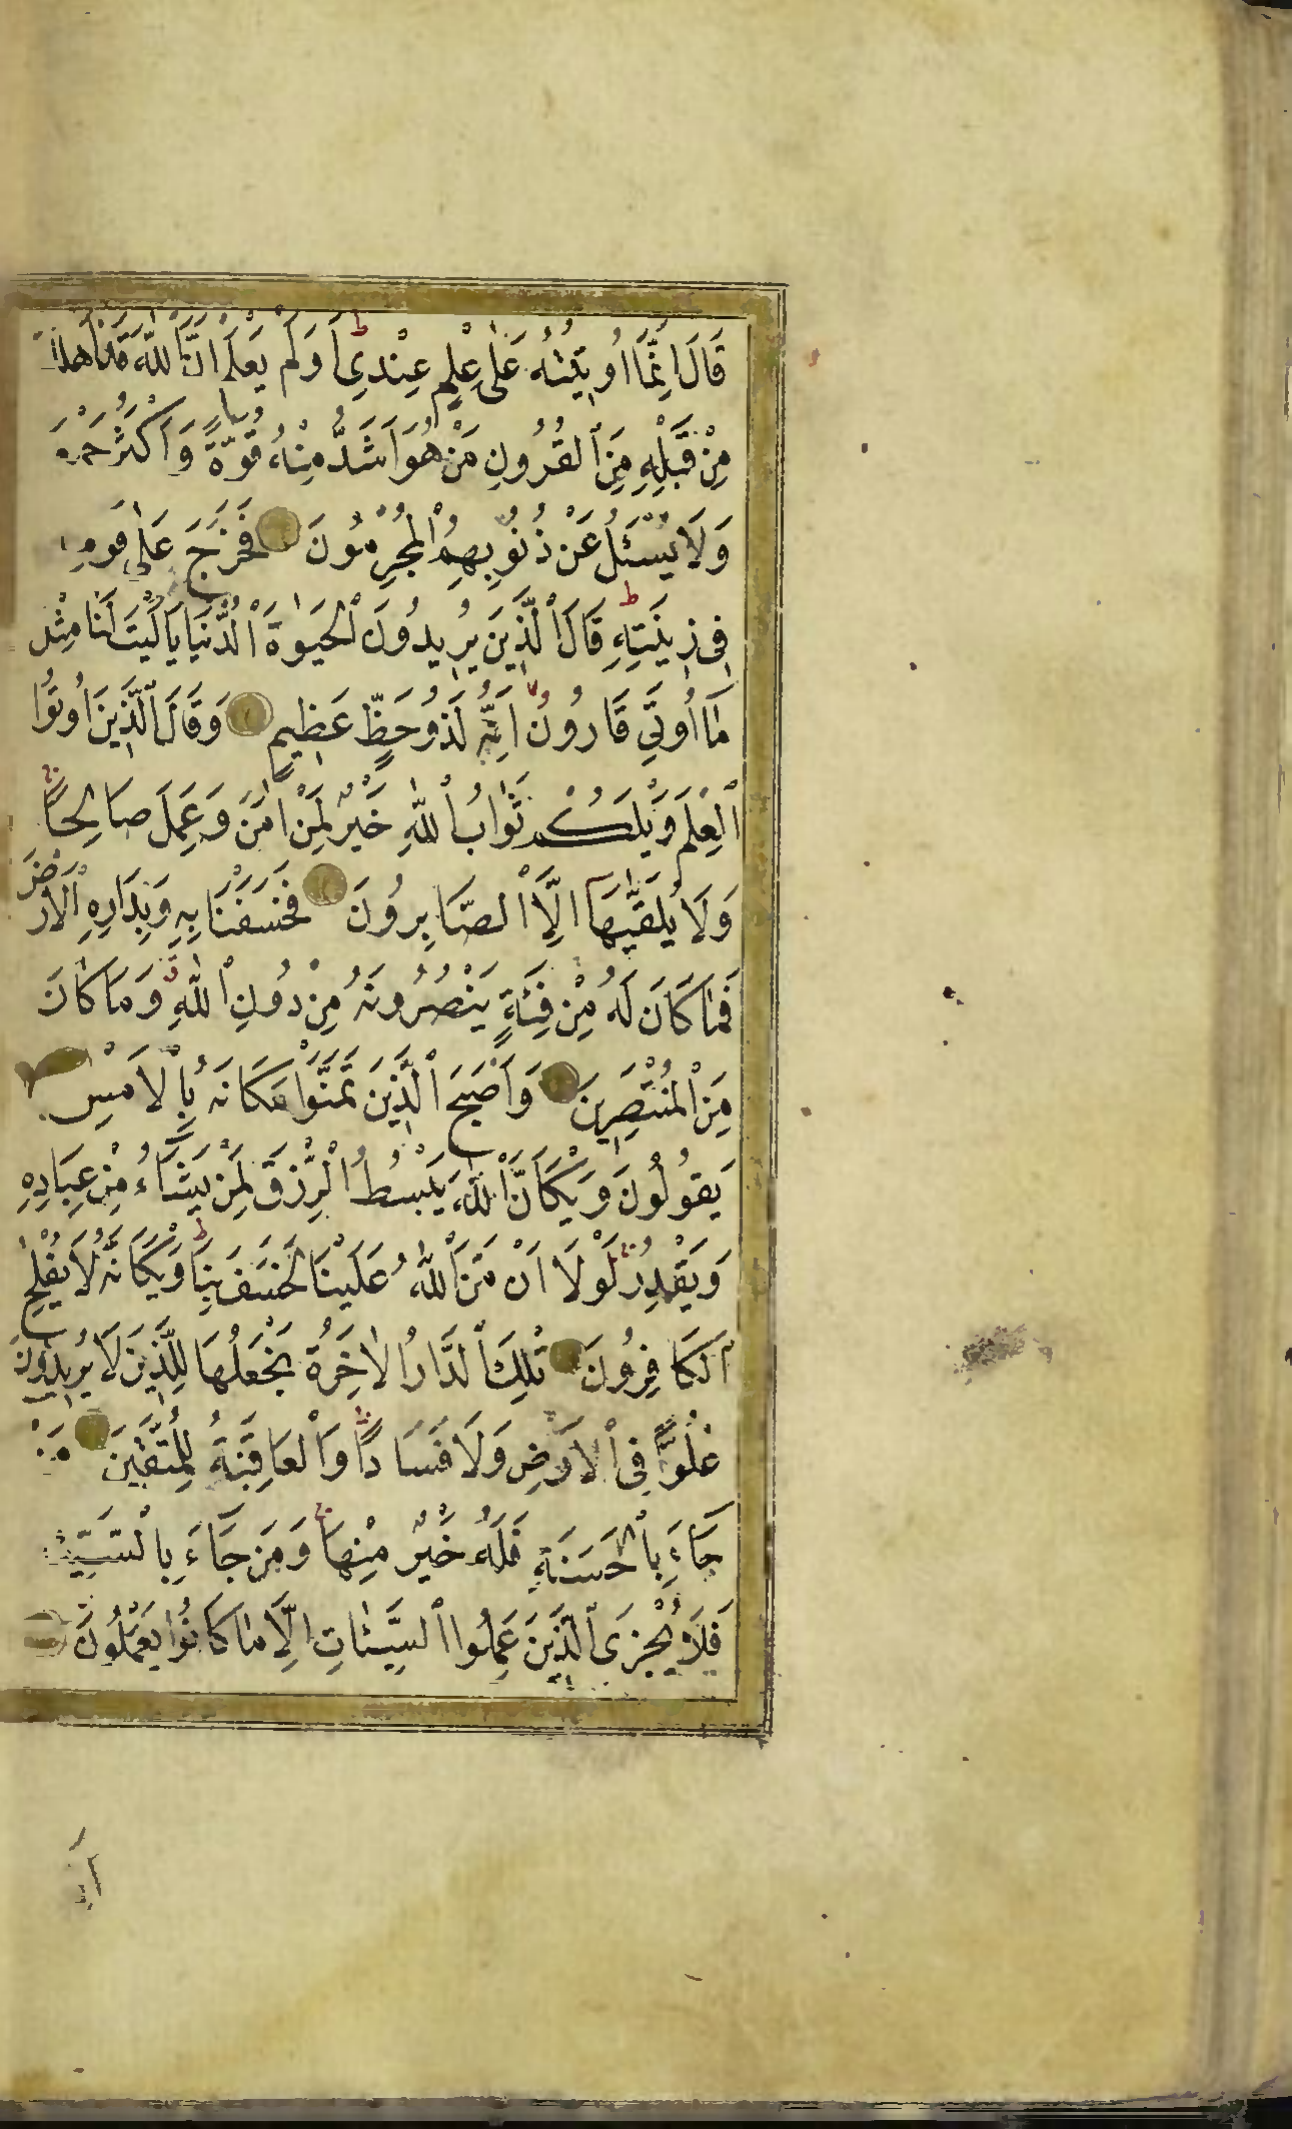 قَالَ اِنَّمَا اُوتِيتُهُ عَلٰى عِلْمٍ عِنْدِى اَوَلَمْ يَعْلَمْ اَنَّ اللّٰهَ قَدْ اَهْلَكَ
مِنْ قَبْلِهِ مِنَ الْقُرُونِ مَنْ هُوَ اَشَدُّ مِنْهُ قُوَّةً وَاَكْثَرُ جَمْعًا
وَلَا يُسْئَلُ عَنْ ذُنُوبِهِمُ الْمُجْرِمُونَ فَخَرَجَ عَلٰى قَوْمِهِ
فِى زِينَتِهِ قَالَ الَّذِينَ يُرِيدُونَ الْحَيٰوةَ الدُّنْيَا يَا لَيْتَ لَنَا مِثْلَ
مَا اُوتِىَ قَارُونُ اِنَّهُ لَذُو حَظٍّ عَظِيمٍ وَقَالَ الَّذِينَ اُوتُوا
الْعِلْمَ وَيْلَكُمْ ثَوَابُ اللّٰهِ خَيْرٌ لِمَنْ اٰمَنَ وَعَمِلَ صَالِحًا
وَلَا يُلَقّٰيهَا اِلَّا الصَّابِرُونَ فَخَسَفْنَا بِهِ وَبِدَارِهِ الْاَرْضَ
فَمَا كَانَ لَهُ مِنْ فِئَةٍ يَنْصُرُونَهُ مِنْ دُونِ اللّٰهِ وَمَا كَانَ
مِنَ الْمُنْتَصِرِينَ وَاَصْبَحَ الَّذِينَ تَمَنَّوْا مَكَانَهُ بِالْاَمْسِ
يَقُولُونَ وَيْكَاَنَّ اللّٰهَ يَبْسُطُ الرِّزْقَ لِمَنْ يَشَاءُ مِنْ عِبَادِهِ
وَيَقْدِرُ لَوْلَا اَنْ مَنَّ اللّٰهُ عَلَيْنَا لَخَسَفَ بِنَا وَيْكَاَنَّهُ لَا يُفْلِحُ
الْكَافِرُونَ تِلْكَ الدَّارُ الْاٰخِرَةُ نَجْعَلُهَا لِلَّذِينَ لَا يُرِيدُونَ
عُلُوًّا فِى الْاَرْضِ وَلَا فَسَادًا وَالْعَاقِبَةُ لِلْمُتَّقِينَ مَنْ
جَاءَ بِالْحَسَنَةِ فَلَهُ خَيْرٌ مِنْهَا وَمَنْ جَاءَ بِالسَّيِّئَةِ
فَلَا يُجْزَى الَّذِينَ عَمِلُوا السَّيِّئَاتِ اِلَّا مَا كَانُوا يَعْمَلُونَ